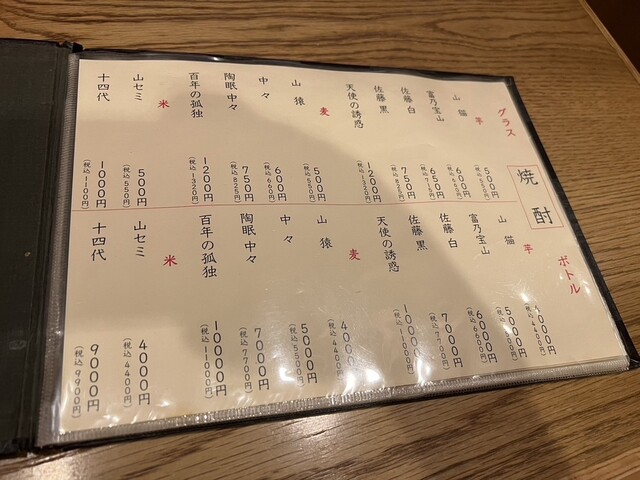 焼酎
グラス
芋
山猫 500円
(税込550円)
富乃宝山 600円
(税込660円)
佐藤 白 650円
(税込715円)
佐藤 黒 750円
(税込825円)
天使の誘惑 1200円
(税込1320円)
麦
山猿 500円
(税込550円)
中々 600円
(税込660円)
陶眠 中々 750円
(税込825円)
百年の孤独 1200円
(税込1320円)
米
山セミ 500円
(税込550円)
十四代 1000円
(税込1100円)
ボトル
芋
山猫 4000円
(税込4400円)
富乃宝山 5000円
(税込5500円)
佐藤 白 6000円
(税込6600円)
佐藤 黒 7000円
(税込7700円)
天使の誘惑 10000円
(税込11000円)
麦
山猿 4000円
(税込4400円)
中々 5000円
(税込5500円)
陶眠 中々 7000円
(税込7700円)
百年の孤独 10000円
(税込11000円)
米
山セミ 4000円
(税込4400円)
十四代 9000円
(税込9900円)